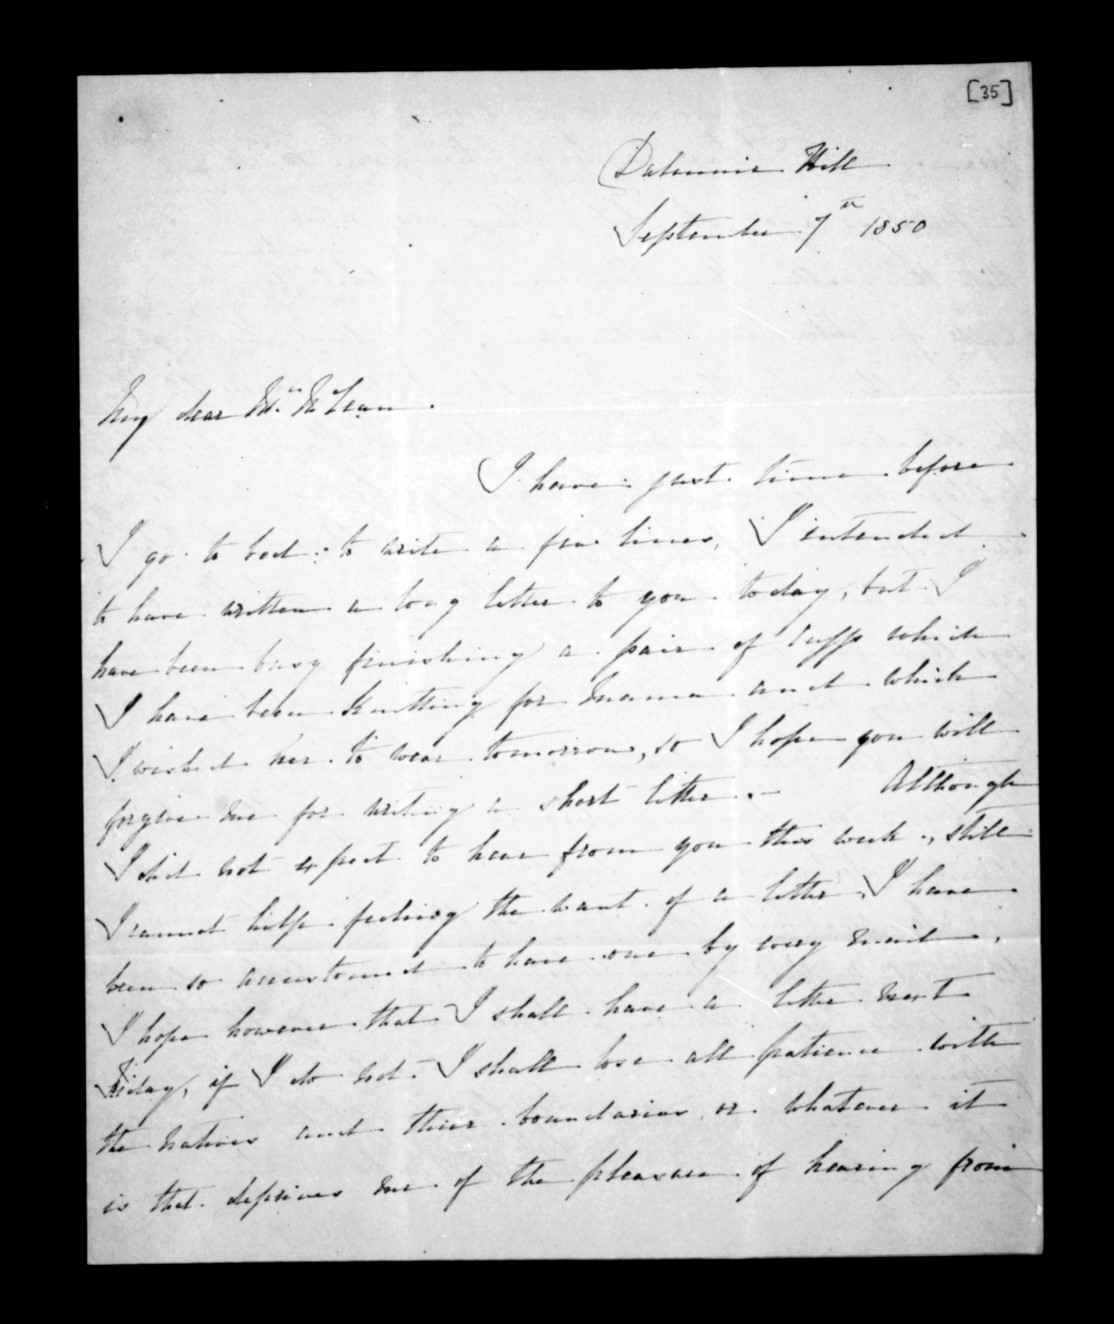 [35]
Dalmuir Hill
September 7th 1850
My dear Mr. McLean.
I have just time before
I go to bed to write a few lines, I intended
to have written a long letter to you today, but I
have been busy finishing a pair of cuffs which
I have been knitting for Mama and which
I wished her to wear tomorrow, so I hope you will
forgive me for writing a short letter. - Although
I did not expect to hear from you this week, still
I cannot help feeling the want of a letter, I have
been so accustomed to have one by every mail,
I hope however that I shall have a letter next
Friday, if I do not I shall lose all patience with
the natives and their boundaries or whatever it
is that deprives me of the pleasure of hearing from